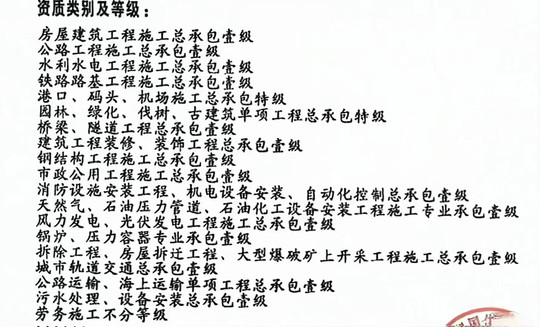 资质类别及等级：
房屋建筑工程施工总承包壹级
公路工程施工总承包壹级
水利水电工程施工总承包壹级
铁路路基工程施工总承包壹级
港口、码头、机场施工总承包特级
园林、绿化、伐树、古建筑单项工程总承包特级
桥梁、隧道工程总承包壹级
建筑工程装修、装饰工程总承包壹级
钢结构工程施工总承包壹级
市政公用工程施工总承包壹级
消防设施安装工程、机电设备安装、自动化控制总承包壹级
天然气、石油压力管道、石油化工设备安装工程施工专业承包壹级
风力发电、光伏发电工程施工总承包壹级
锅炉、压力容器专业承包壹级
拆除工程、房屋拆迁工程、大型爆破矿上开采工程施工总承包壹级
城市轨道交通总承包壹级
公路运输、海上运输单项工程总承包壹级
污水处理、设备安装总承包壹级
劳务施工不分等级